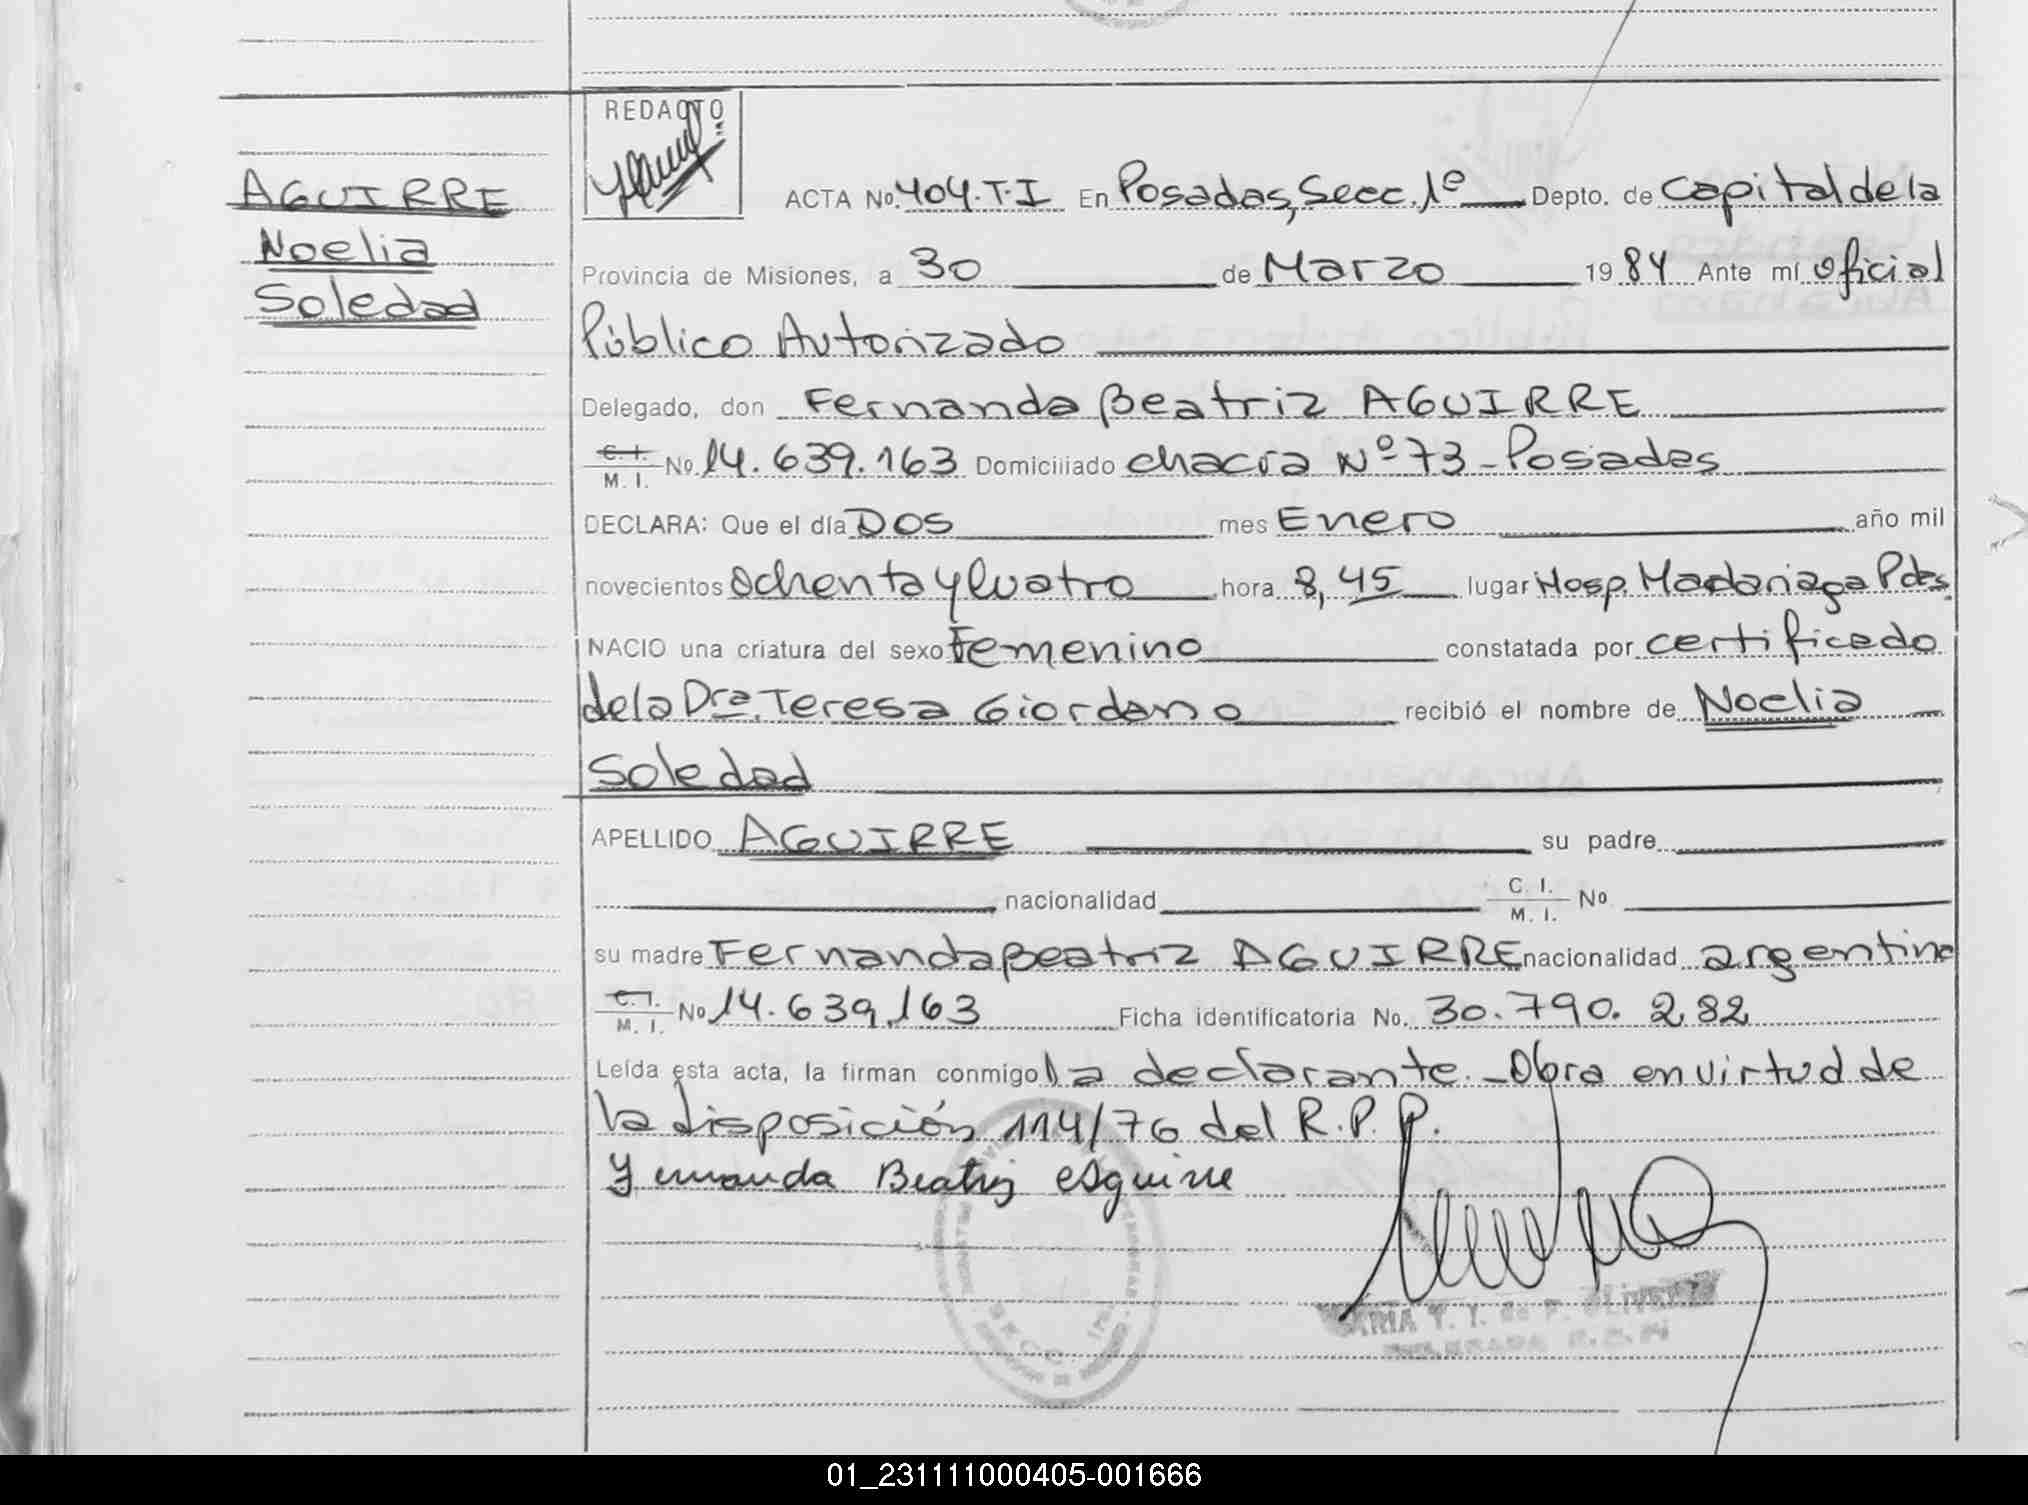 REDACTO
AGUIRRE
Noelia
Soledad
ACTA No. 404.T.I En Posadas, Secc. 1º Depto. de Capital de la
Provincia de Misiones, a 30 de Marzo 19 84 Ante mí Oficial
Público Autorizado
Delegado, don Fernanda Beatriz AGUIRRE
C. I. / M. I. No. 14.639.163 Domiciliado chacra Nº 73 - Posadas
DECLARA: Que el día Dos mes Enero año mil
novecientos Ochenta y Cuatro hora 8,45 lugar Hosp. Madariaga Pdas.
NACIO una criatura del sexo Femenino constatada por certificado
de la Dra. Teresa Giordano recibió el nombre de Noelia
Soledad
APELLIDO AGUIRRE su padre
nacionalidad C. I. / M. I. No
su madre Fernanda Beatriz AGUIRRE nacionalidad argentina
C. I. / M. I. No 14.639.163 Ficha identificatoria No. 30.790.282
Leída esta acta, la firman conmigo la declarante. - Obra en virtud de
la disposición 114/76 del R.P.P.
Fernanda Beatriz Aguirre
01_231111000405-001666